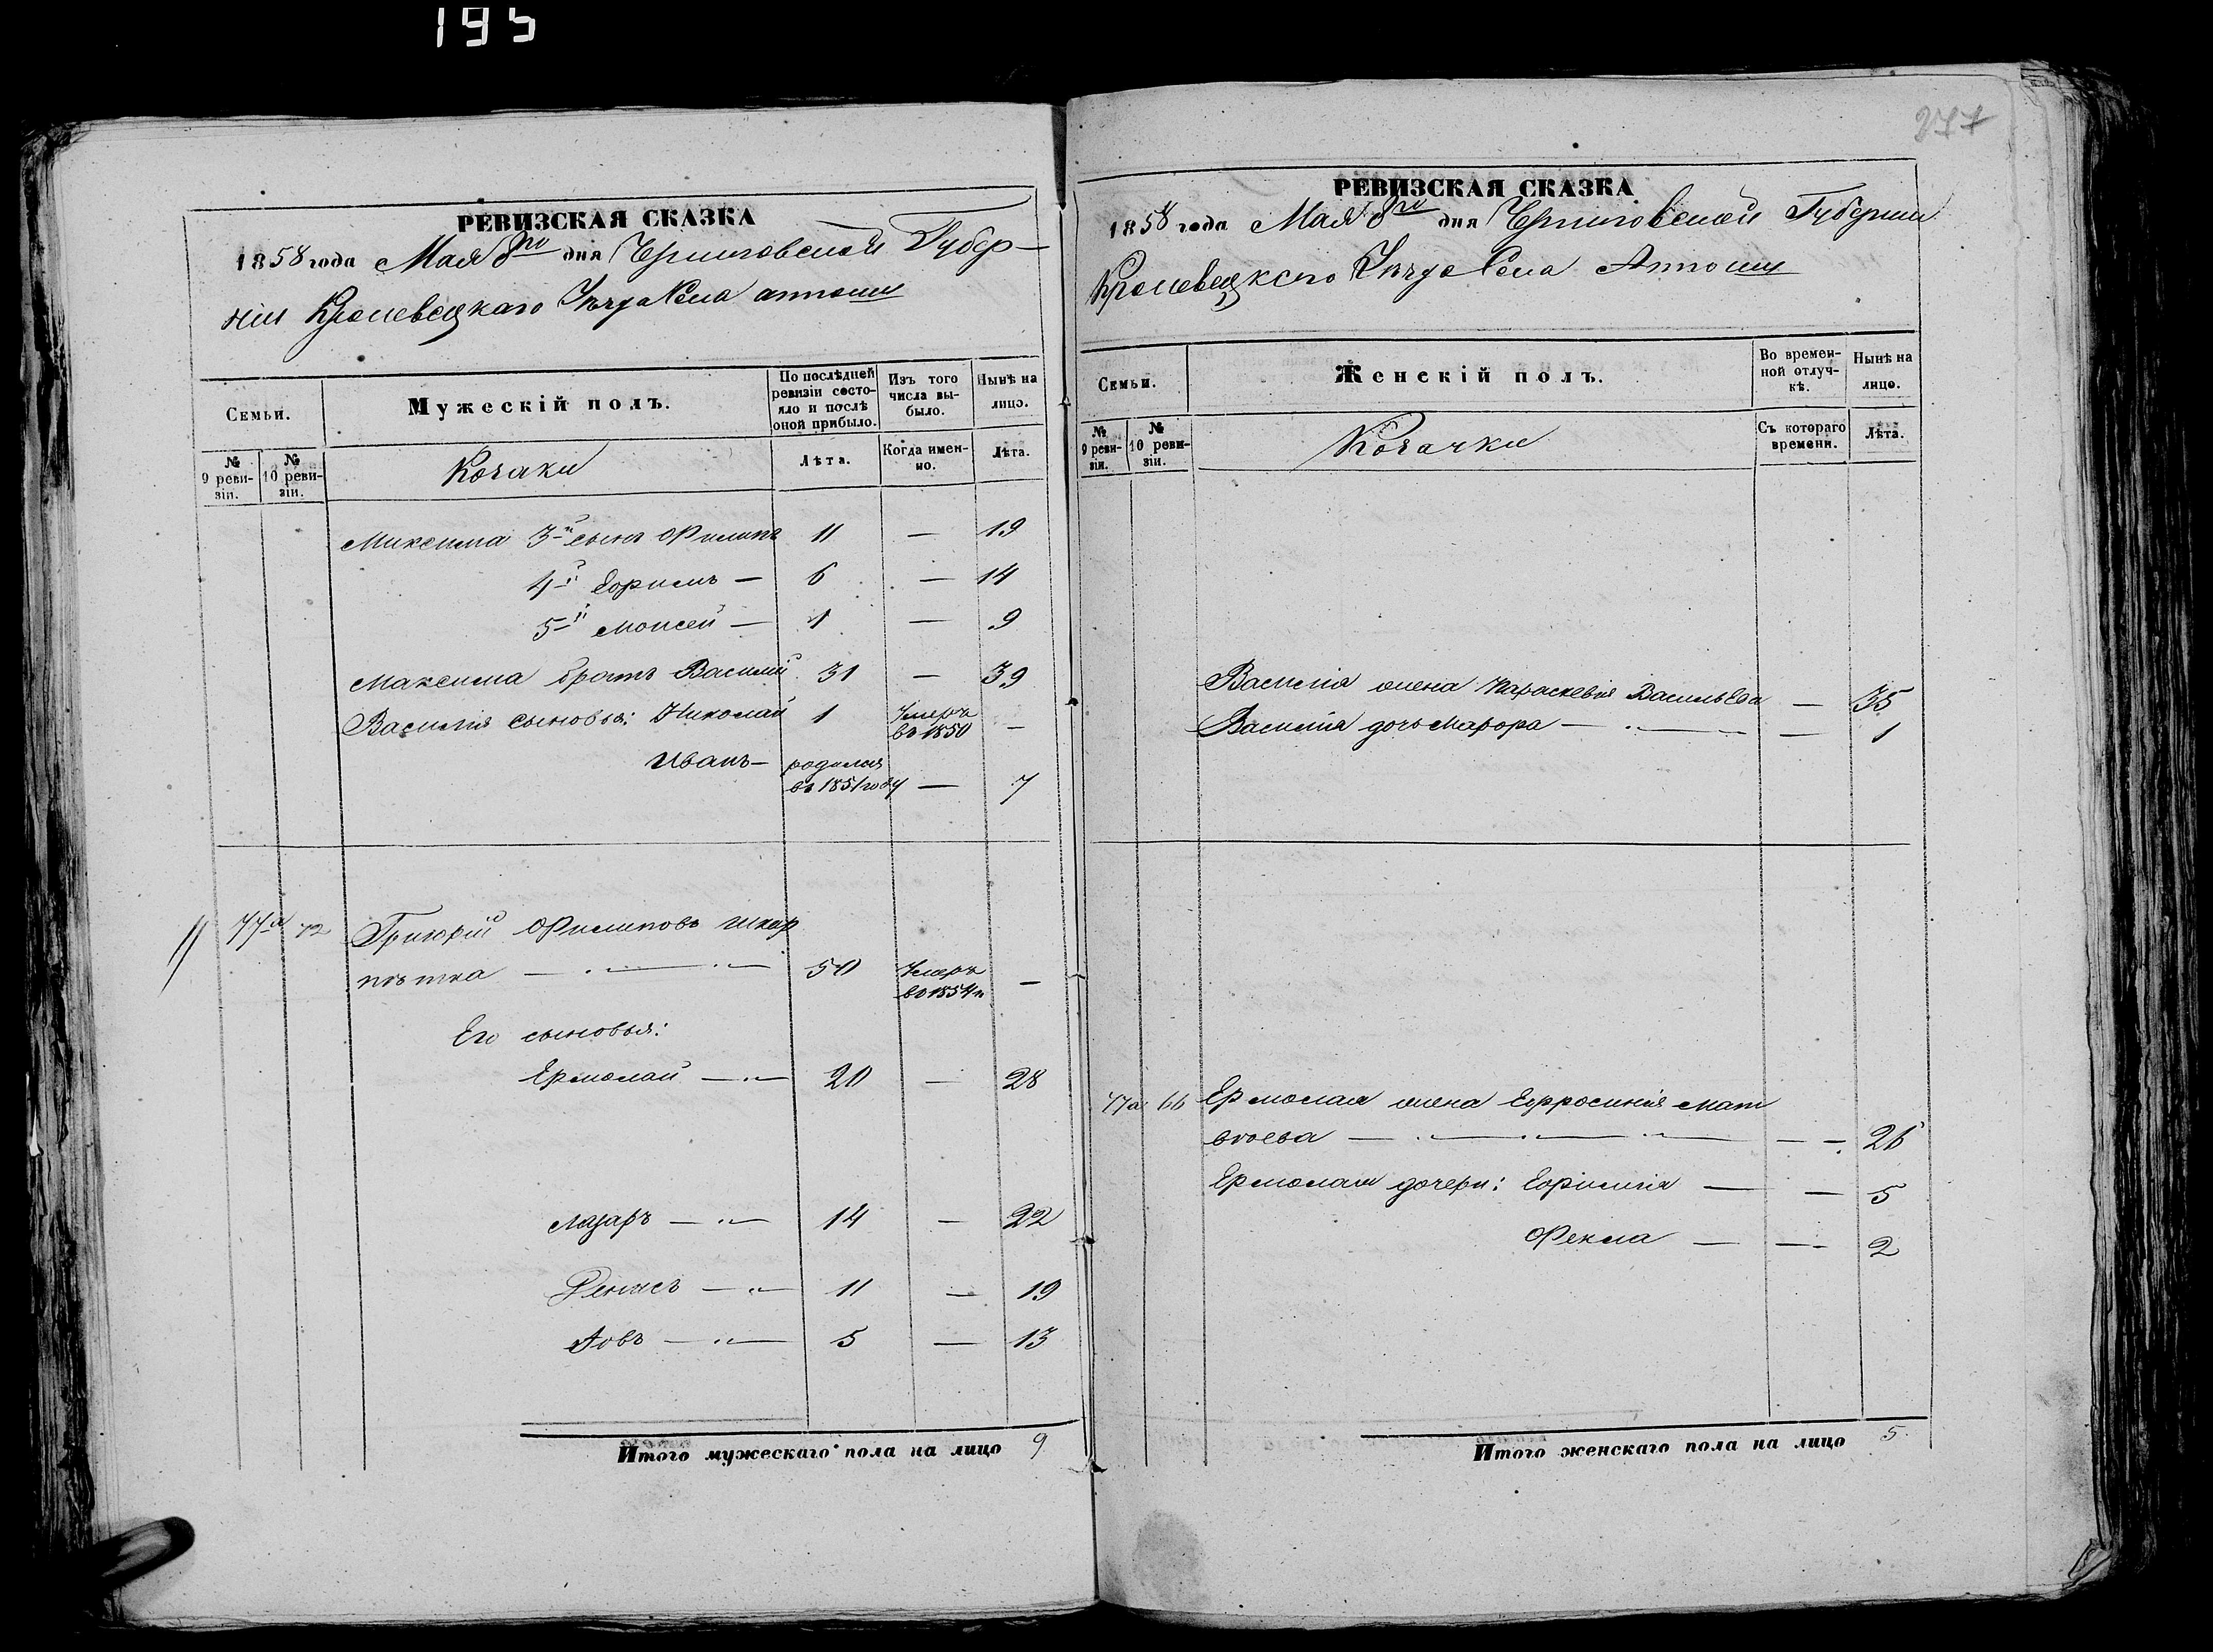 195
РЕВИЗСКАЯ СКАЗКА
1858 года Мая 8го дня Черниговской Губер-
ніи Кролевецкаго Уѣзда Села
Семьи.
Мужескій полъ.
По послѣдней ревизіи состояло и послѣ оной прибыло.
Изъ того числа выбыло.
Нынѣ на лицо.
№ 9 ревизіи.
№ 10 ревизіи.
Козаки
Лѣта.
Когда именно.
Лѣта.
Максима 3й сынъ Филипъ 11 — 19
4й Ефимъ — 6 — 14
5й Моисей — 1 — 9
Максима братъ Василій 31 — 39
Василія сыновья: Николай 1 Умеръ въ 1850 —
Иванъ — родился въ 1851 году — 7
77а 72 Григорій Филиповъ Шкар
пѣтка — 50 Умеръ въ 1854 —
Его сыновья:
Ермолай — 20 — 28
Лазарь — 14 — 22
Денисъ — 11 — 19
Іовъ — 5 — 13
Итого мужескаго пола на лицо 9
277
РЕВИЗСКАЯ СКАЗКА
1858 года Мая 8го дня Черниговской Губерніи
Кролевецкаго Уѣзда Села
Семьи.
Женскій полъ.
Во временной отлучкѣ.
Нынѣ на лицо.
№ 9 ревизіи.
№ 10 ревизіи.
Козачки
Съ котораго времени.
Лѣта.
Василія жена Параскевія Васильева — 35
Василія дочь Марфа — — 1
77а 66 Ермолая жена Ефросинія Мат
вѣева — — 26
Ермолая дочери: Ефимія — — 5
Фекла — — 2
Итого женскаго пола на лицо 5